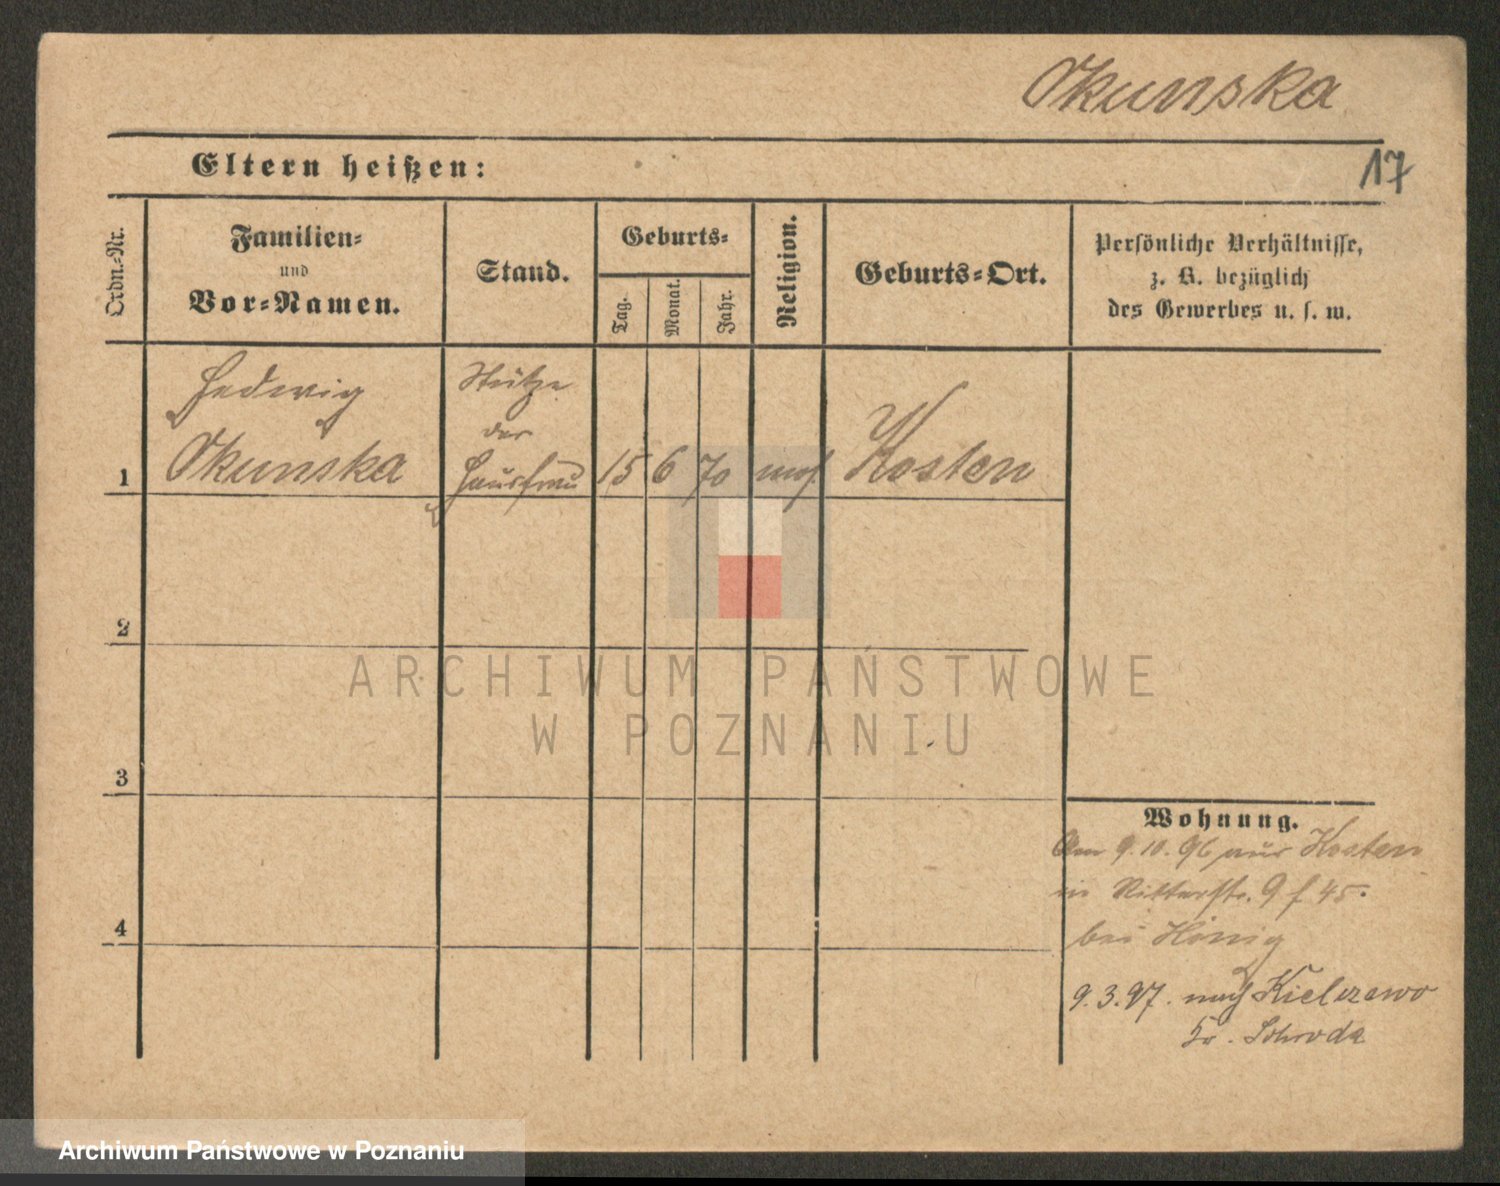 Okunska
17
Eltern heißen:
Ordn.-Nr.
Familien-
und
Vor-Namen.
Stand.
Geburts-
Tag.
Monat.
Jahr.
Religion.
Geburts-Ort.
Persönliche Verhältnisse,
z. B. bezüglich
des Gewerbes u. s. w.
1
Hedwig
Okunska
Stütze
der
Hausfrau
15
6
70
mos.
Kosten
2
3
4
Wohnung.
Am 9.10.96 aus Kosten
in Ritterstr. 9 f 45.
bei König
9.3.97. nach Kielczewo
Kr. Schroda
ARCHIWUM PAŃSTWOWE
W POZNANIU
Archiwum Państwowe w Poznaniu